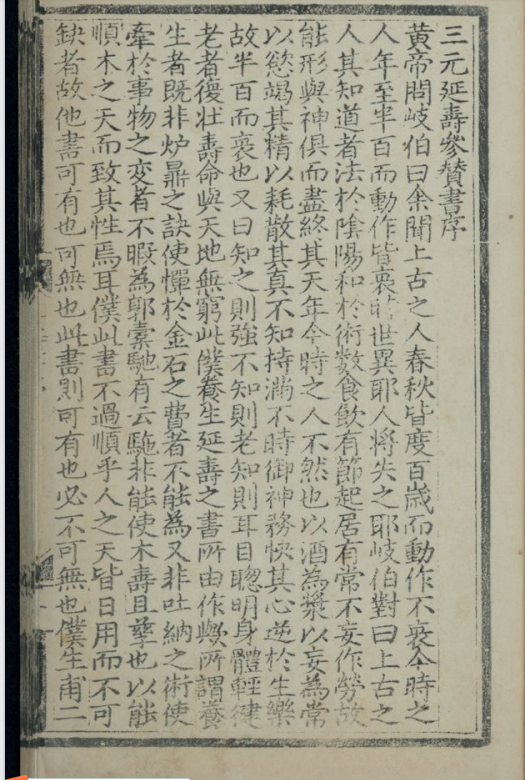 三元延壽參贊書序
黃帝問岐伯曰余聞上古之人春秋皆度百歲而動作不衰今時之
人年至半百而動作皆衰時世異耶人將失之耶岐伯對曰上古之
人其知道者法於陰陽和於術數食飲有節起居有常不妄作勞故
能形與神俱而盡終其天年今時之人不然也以酒為漿以妄為常
以慾竭其精以耗散其真不知持滿不時御神務快其心逆於生樂
故半百而衰也又曰知之則強不知則老知則耳目聰明身體輕徤
老者復壯壽命與天地無窮此僕養生延壽之書所由作歟所謂養
生者既非炉鼎之訣使憚於金石之費者不能為又非吐納之術使
牽於事物之变者不暇為郭橐馳有云馳非能使木壽且孳也以能
順木之天而致其性焉耳僕此書不過順乎人之天皆日用而不可
缺者故他書可有也可無也此書則可有也必不可無也僕生甫二